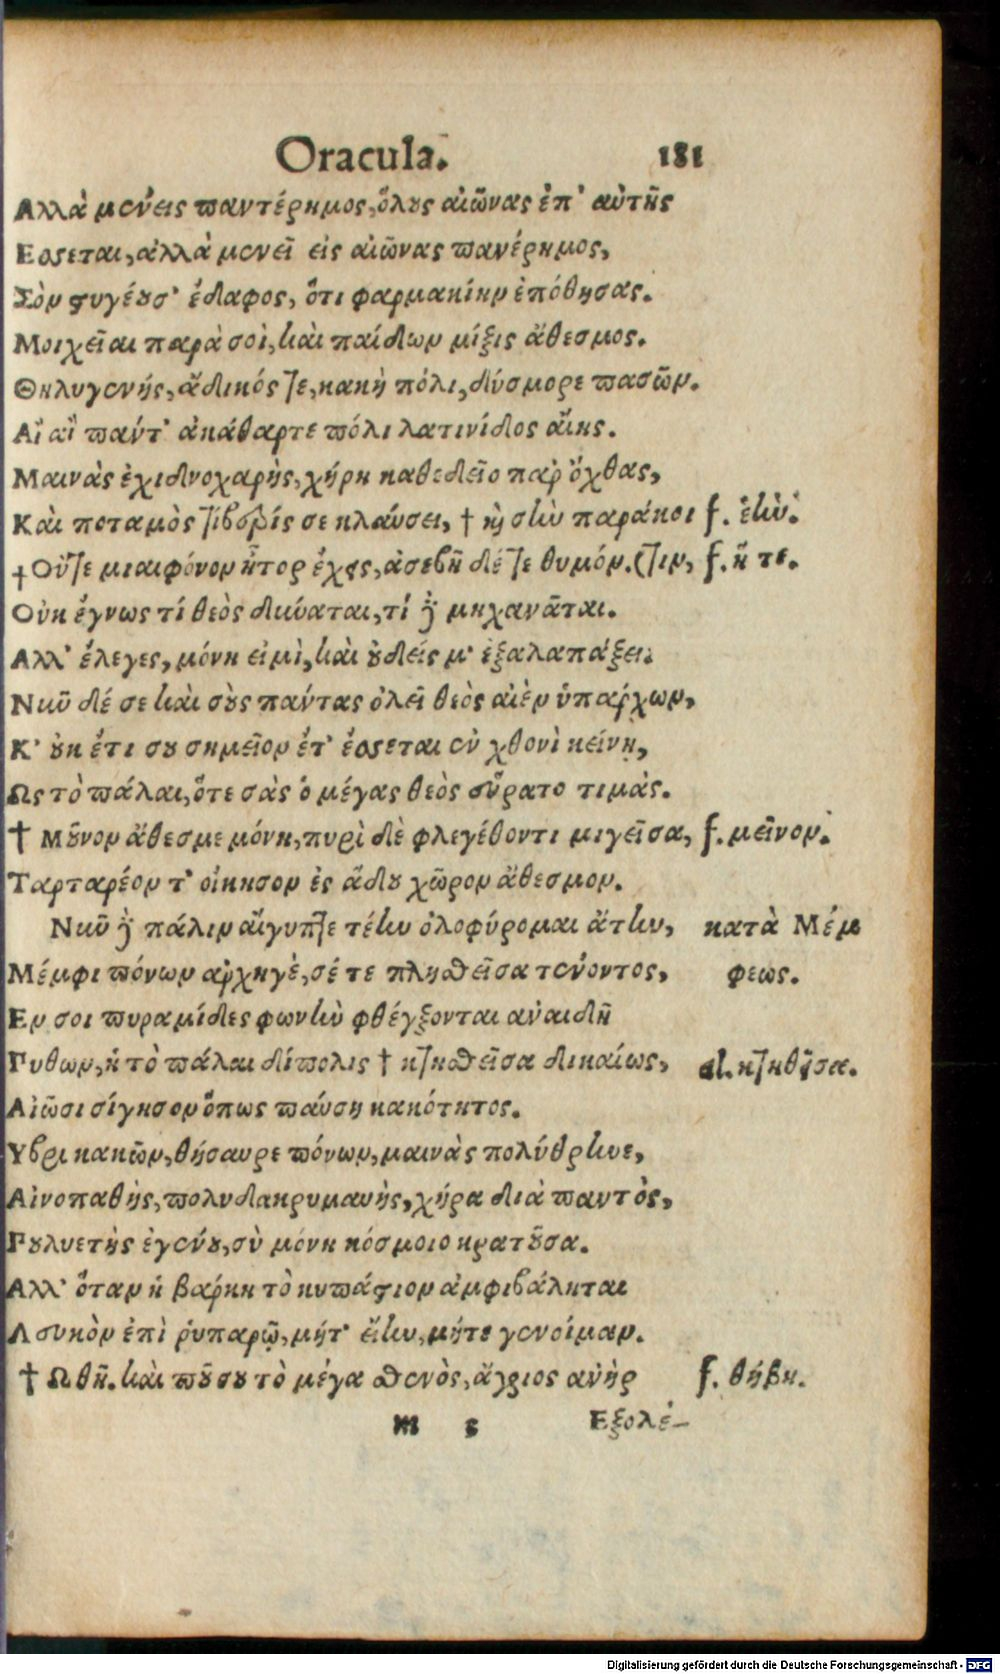 Oracula. 181
Αλλὰ μένεις παντέρημος, ὅλους αἰῶνας ἐπ' αὐτῆς
Εσσεται, ἀλλὰ μενεῖ εἰς αἰῶνας πανέρημος,
Σὸν στυγέουσ' ἔδαφος, ὅτι φαρμακίην ἐπόθησας.
Μοιχεῖαι παρὰ σοὶ, καὶ παίδων μίξις ἄθεσμος.
Θηλυγενής, ἄδικός τε, κακὴ πόλι, δύσμορε πασῶν.
Αἲ αἲ πάντ' ἀκάθαρτε πόλι λατινίδος αἴης.
Μαινὰς ἐχιδνοχαρὴς, χήρη καθεδεῖο παρ' ὄχθας,
Καὶ ποταμὸς τίβερίς σε κλαύσει, † καὶ σὴν παράκοι f. ἑήν.
†Οὔτε μιαιφόνον ἦτορ ἔχεις, ἀσεβῆ δέ τε θυμόν. (τιν, f. ἥ τε.
Οὐκ ἔγνως τί θεὸς δύναται, τί δὲ μηχανᾶται.
Αλλ' ἔλεγες, μόνη εἰμὶ, καὶ οὐδείς μ' ἐξαλαπάξει.
Νῦν δέ σε καὶ σοὺς πάντας ὀλεῖ θεὸς αἰὲν ὑπάρχων,
Κ' οὐκ ἔτι σου σημεῖον ἔτ' ἔσσεται ἐν χθονὶ κείνῃ,
Ως τὸ πάλαι, ὅτε σὰς ὁ μέγας θεὸς εὕρατο τιμάς.
† Μοῦνον ἄθεσμε μόνη, πυρὶ δὲ φλεγέθοντι μιγεῖσα, f. μεῖνον.
Ταρταρέον τ' οἴκησον ἐς ᾅδου χῶρον ἄθεσμον.
Νῦν δὲ πάλιν αἴγυπτε τέην ὀλοφύρομαι ἄτην, κατὰ Μέμ
Μέμφι πόνων ἀρχηγὲ, σέ τε πληθεῖσα τένοντος, φεως.
Εν σοι πυραμίδες φωνὴν φθέγξονται ἀναιδῆ
Γυθων, ἡ τὸ πάλαι δίπολις † κτηθεῖσα δικαίως, al. κτηθῆσα.
Αἰῶσι σίγησον ὅπως παύσῃ κακότητος.
Υβρι κακῶν, θήσαυρε πόνων, μαινὰς πολύθρηνε,
Αἰνοπαθὴς, πολυδακρυμανὴς, χήρα διὰ παντὸς,
Γουλυετὴς ἐγένου, σὺ μόνη κόσμοιο κρατοῦσα.
Αλλ' ὅταν ἡ βάρκη τὸ κυπάσσιον ἀμφιβάληται
Λευκὸν ἐπὶ ῥυπαρῷ, μήτ' εἴην, μήτε γενοίμαν.
† Ω θῆ. καὶ ποῦ σου τὸ μέγα σθένος, ἄγριος ἀνὴρ f. θήβη.
m 5 Εξολέ-
Digitalisierung gefördert durch die Deutsche Forschungsgemeinschaft - DFG